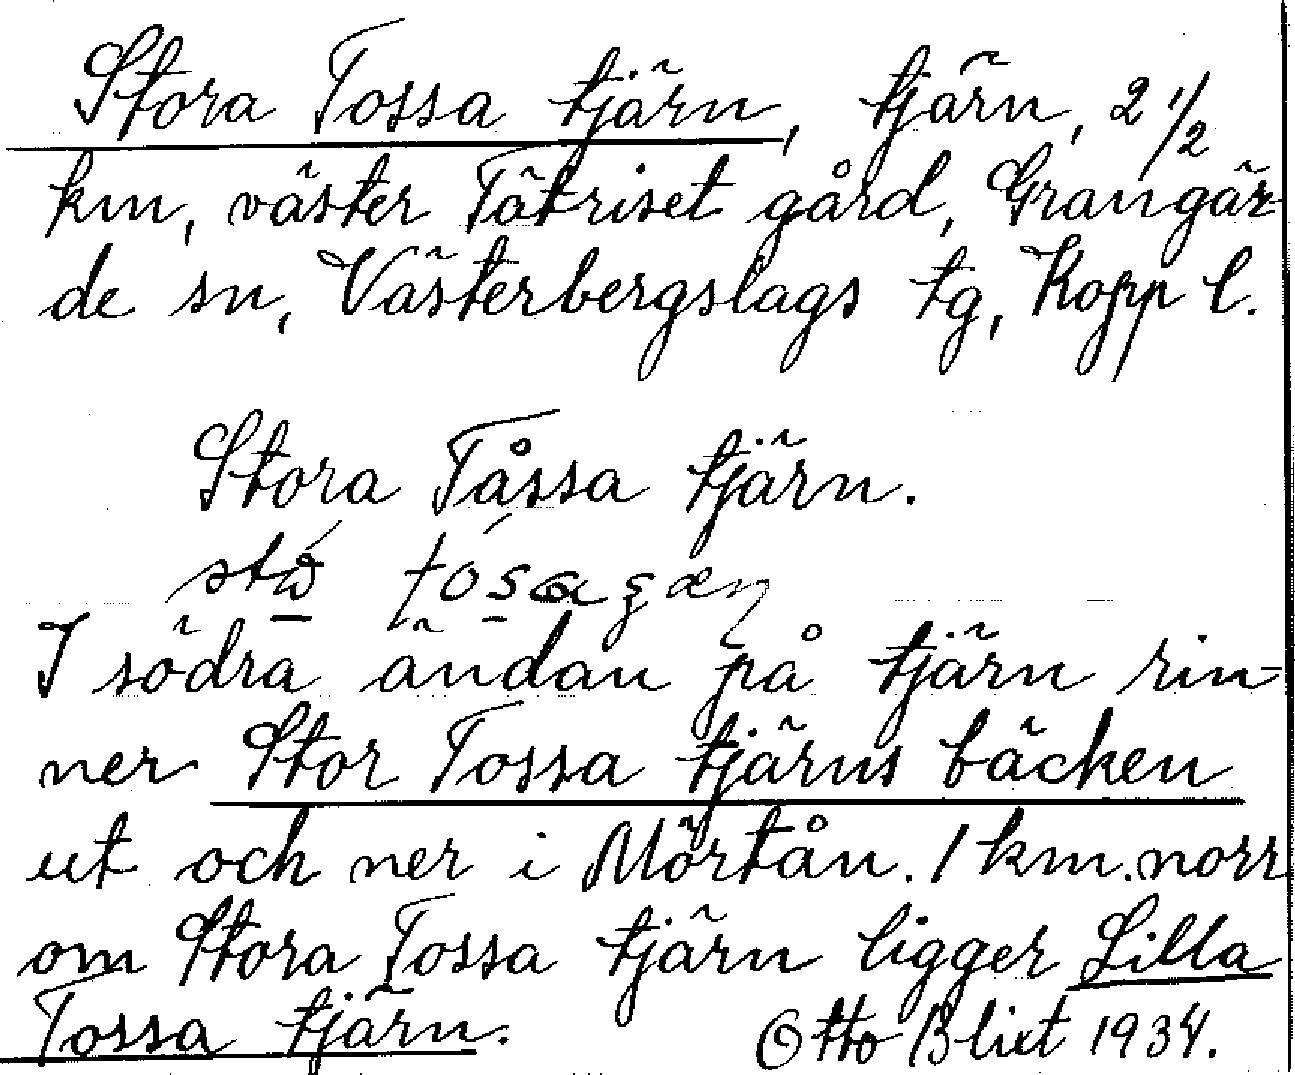 Stora Tossa tjärn, tjärn, 2 1/2
km, väster Tätriset gård, Grangär-
de sn, Västerbergslags tg, Kopp l.
Stora Tåssa tjärn.
I södra ändan på tjärn rin-
ner Stor Tossa tjärns bäcken
ut och ner i Mörtån. 1 km. norr
om Stora Tossa tjärn ligger Lilla
Tossa tjärn. Otto Blixt 1934.